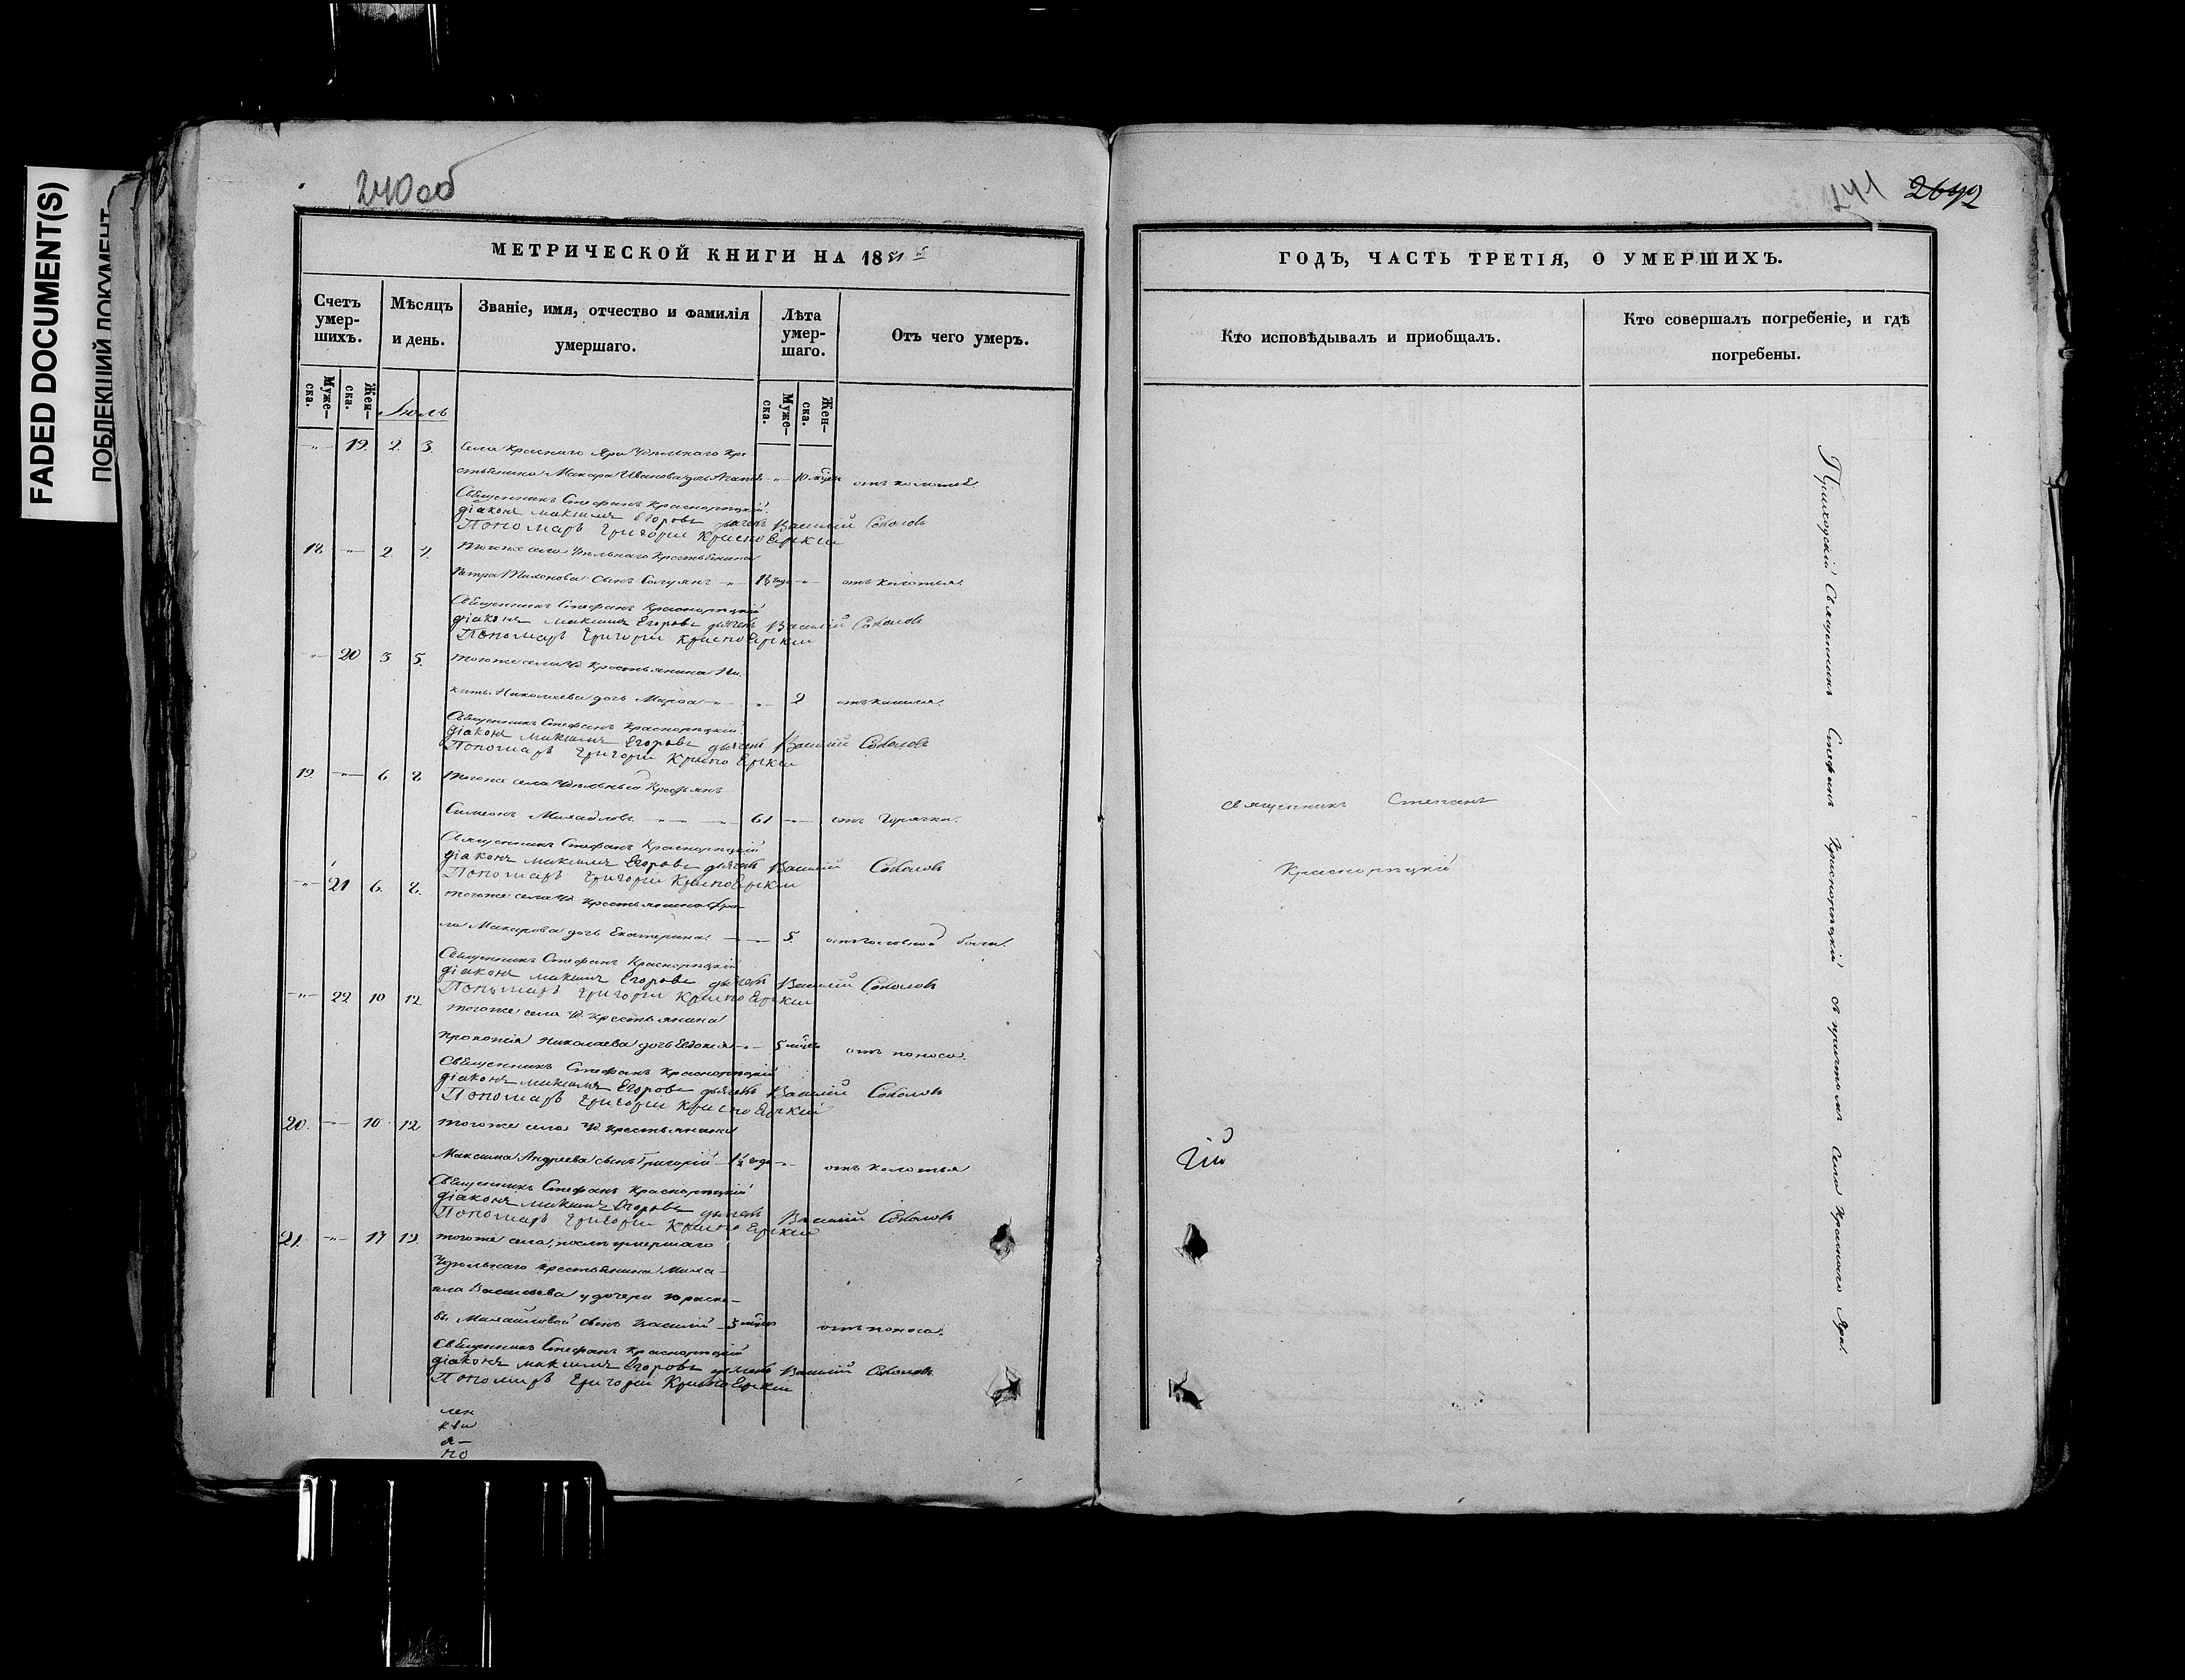 FADED DOCUMENT(S)
240об
241
МЕТРИЧЕСКОЙ КНИГИ НА 1851й
ГОДЪ, ЧАСТЬ ТРЕТІЯ, О УМЕРШИХЪ.
Счетъ умер-шихъ.
Муже-ска.
Жен-ска.
Мѣсяцъ и день.
Званіе, имя, отчество и фамилія умершаго.
Лѣта умер-шаго.
Муже-ска.
Жен-ска.
Отъ чего умеръ.
Кто исповѣдывалъ и приобщалъ.
Кто совершалъ погребеніе, и гдѣ погребены.
Іюль
19. 2. 3. Села Краснаго Яра Удѣльнаго Кре
стьянина Макара Иванова дочь 10
Священникъ Стефанъ Краснорѣцкій
діаконъ Максимъ Егоровъ дьячекъ Василій Соколовъ
Пономарь Григорій КрасноЯрскій
18. 2 4. Тогоже села Удѣльнаго Крестьянина
Петра сынъ 1½ года отъ колотья
Священникъ Стефанъ Краснорѣцкій
діаконъ Максимъ Егоровъ дьячекъ Василій Соколовъ
Пономарь Григорій КрасноЯрскій
20 3 5. Тогоже села Уд. Крестьянина Ни
киты Николаева дочь Марѳа 2 отъ кашля.
Священникъ Стефанъ Краснорѣцкій
діаконъ Максимъ Егоровъ дьячекъ Василій Соколовъ
Пономарь Григорій КрасноЯрскій
19. 6 8 Тогоже села Удѣльный
Симеонъ Михайловъ 61 отъ горячки.
Священникъ Стефанъ Краснорѣцкій
діаконъ Максимъ Егоровъ дьячекъ Василій Соколовъ
Пономарь Григорій КрасноЯрскій
Священникъ Стефанъ
Краснорѣцкій
21 6. 8. тогоже села Уд. Крестьянина
Макарова дочь Екатерина 5. отъ головной боли.
Священникъ Стефанъ Краснорѣцкій
діаконъ Максимъ Егоровъ дьячекъ Василій Соколовъ
Пономарь Григорій КрасноЯрскій
22 10 12 тогоже села Уд. Крестьянина
Прокопія Николаева дочь Евдокія 5 отъ поноса.
Священникъ Стефанъ Краснорѣцкій
діаконъ Максимъ Егоровъ дьячекъ Василій Соколовъ
Пономарь Григорій КрасноЯрскій
20. 10 12 тогоже села Уд. Крестьянина
Максима Андреева сынъ Григорій года отъ колотья
Священникъ Стефанъ Краснорѣцкій
діаконъ Максимъ Егоровъ дьячекъ Василій Соколовъ
Пономарь Григорій КрасноЯрскій
гій
21. 17 19. тогоже села, послѣ умершаго
Удѣльнаго крестьянина Миха-
ила Васильева у дочери Параске-
вы Михайловой сынъ Василій отъ поноса.
Священникъ Стефанъ Краснорѣцкій
діаконъ Максимъ Егоровъ дьячекъ Василій Соколовъ
Пономарь Григорій КрасноЯрскій
Приходскій Священникъ Стефанъ Краснорѣцкій съ причтомъ Села Краснаго Яра.